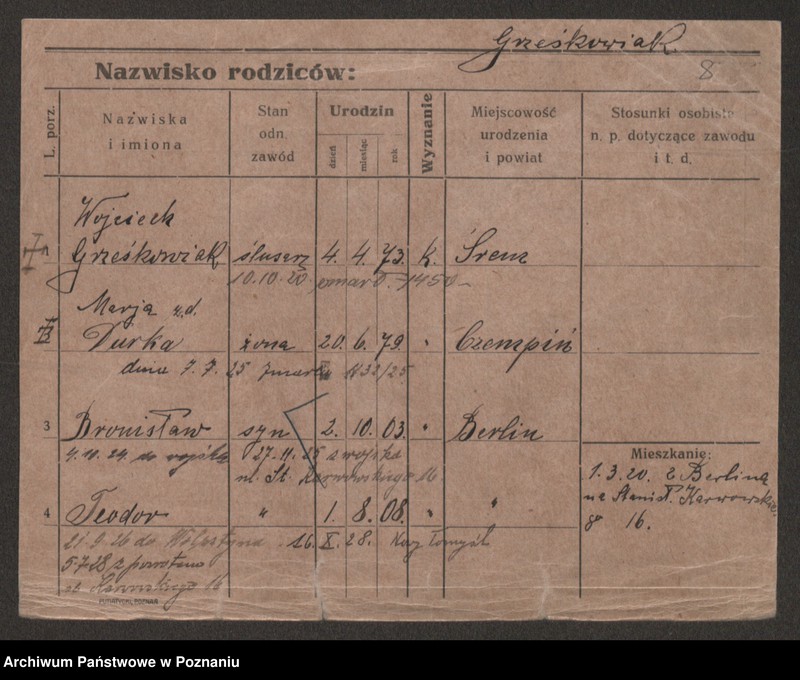 Grześkowiak.
8
Nazwisko rodziców:
L. porz.
Nazwiska i imiona
Stan odn. zawód
Urodzin
dzień
miesiąc
rok
Wyznanie
Miejscowość urodzenia i powiat
Stosunki osobiste n. p. dotyczące zawodu i t. d.
Wojciech
Grześkowiak ślusarz 4. 4. 73. k. Śrem
10.10.20. zmarł 1450
Marja u.d.
Durka żona 20. 6. 79. " Czempiń
dnia 7. 7. 25 zmarła 1133/25
3 Bronisław syn 2. 10. 03. " Berlin
4.11.24. do wojska 27.11.25 z wojska
ul. St. Karwowskiego 16
Mieszkanie:
1.3.20. z Berlina
na Stanisł. Karwowskie-
go 16.
4 Teodor " 1. 8. 08. " "
21.9.26 do Wolsztyna 16. X. 28.
5.7.28 z powrotem
16
PUTIATYCKI, POZNAŃ
Archiwum Państwowe w Poznaniu